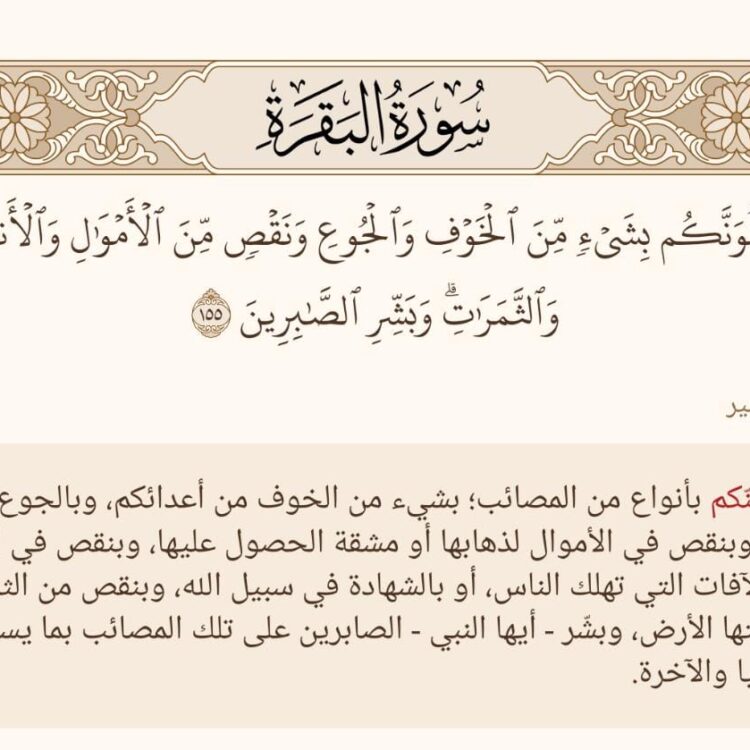 سُورَةُ البَقَرَةِ
بِشَىْءٍ مِّنَ ٱلْخَوْفِ وَٱلْجُوعِ وَنَقْصٍ مِّنَ ٱلْأَمْوَٰلِ
وَٱلثَّمَرَٰتِۗ وَبَشِّرِ ٱلصَّٰبِرِينَ ١٥٥
بأنواع من المصائب؛ بشيء من الخوف من أعدائكم، وبالجوع
وبنقص في الأموال لذهابها أو مشقة الحصول عليها، وبنقص في
التي تهلك الناس، أو بالشهادة في سبيل الله، وبنقص من
الأرض، وبشّر - أيها النبي - الصابرين على تلك المصائب بما
والآخرة.